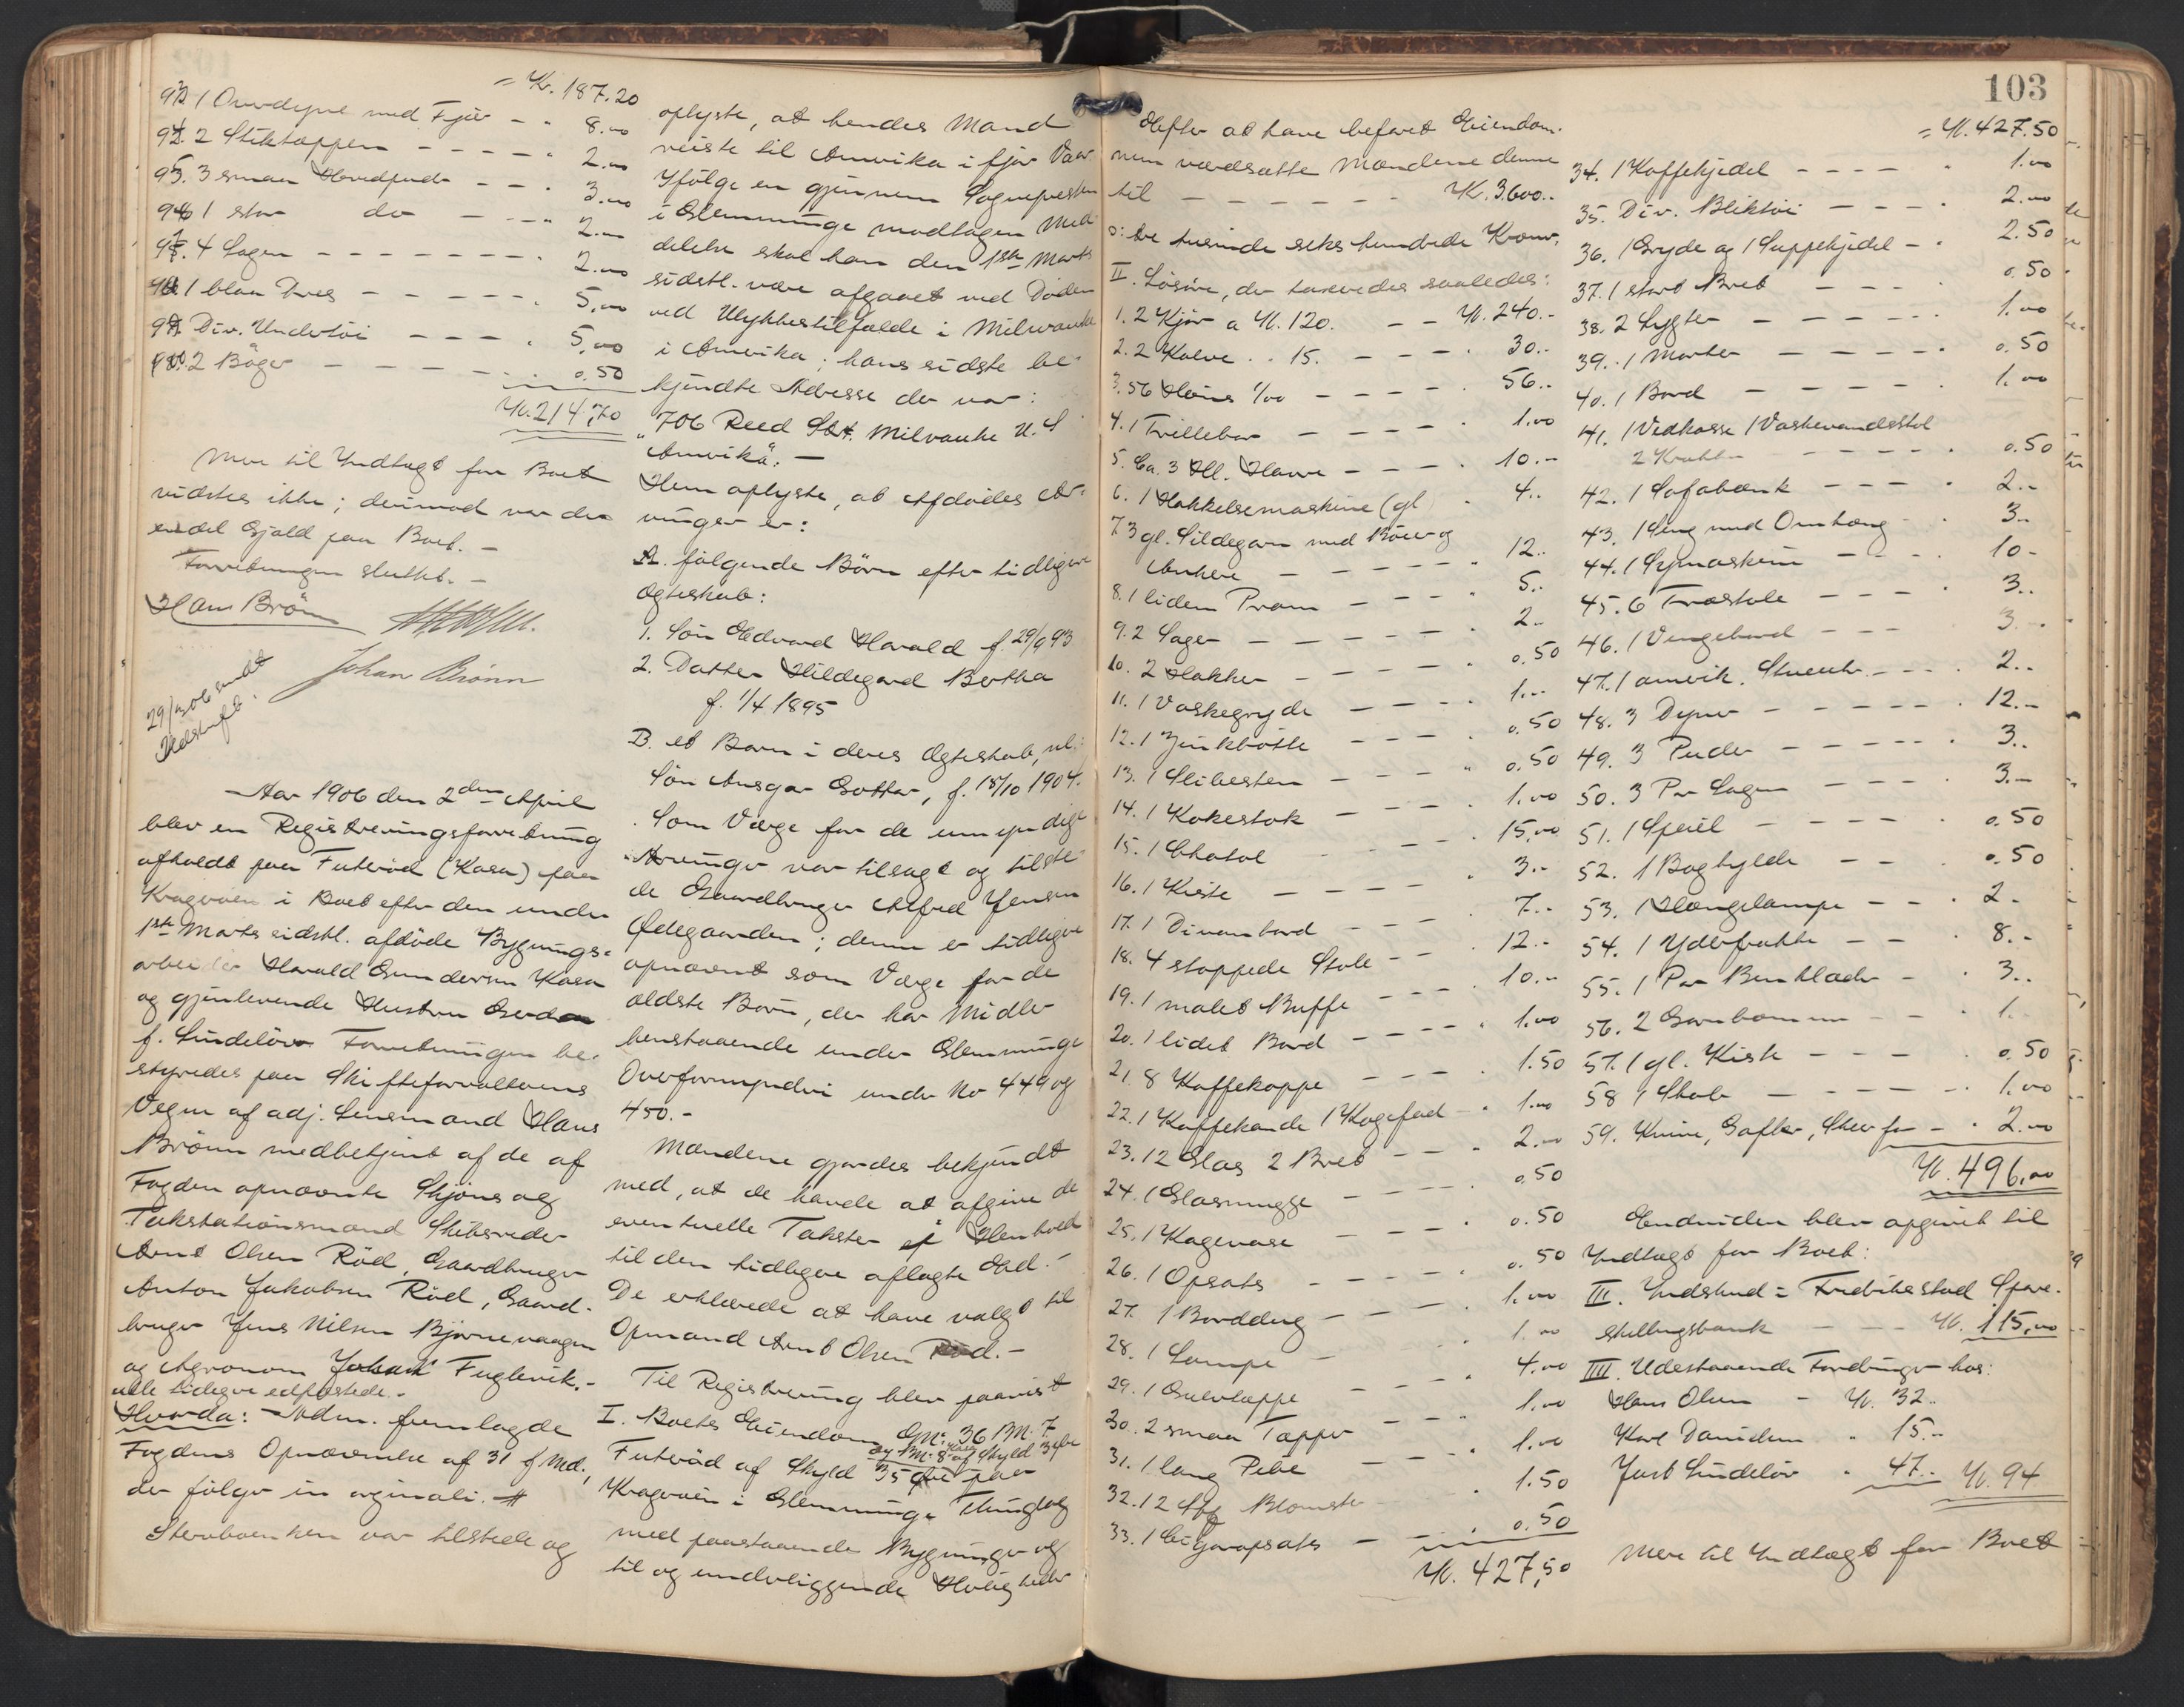 = Kr. 187.20
93. 1 Overdyne med Fjær - " 8.00
94. 2 Stiktæpper - - - - - " 2.00
95. 3 smaa Hovedpuder - - " 3.00
96. 1 stor do - - - - " 2.00
97. 4 Lagen - - - - - - - " 2.00
98. 1 blaa Dres - - - - - " 5,00
99. Div. Undertøi - - - - " 5,00
100. 2 Bøger - - - - - - " 0.50
Kr. 214,70
Mere til Indtægt for Boet
vidstes ikke; derimod var der
endel Gjæld paa Boet. -
Forretningen sluttet. -
Hans Brønn
Johan Brønn
29/3 06 sendt
Udskrift.
Aar 1906 den 2den April
blev en Registreringsforretning
afholdt paa Futerød (Kasa) paa
Kragerøen i Boet efter den under
1ste Marts sidstl. afdøde Bygnings-
arbeider Harald Gundersen Kasa
og gjenlevende Hustru Gerda
f. Lindeløv. Forretningen be-
styredes paa Skifteforvalterens
Vegne af adj. Lensmand Hans
Brønn medbetjent af de af
Fogden opnævnte Skjøns og
Takstationsmænd Skibsreder
Arnt Olsen Rød, Gaardbruger
Anton Jakobsen Rød, Gaard-
bruger Jens Nilsen Bjørnevaagen
og Agronom Johan Fuglevik. -
alle tidligere edfæstede. -
Hvorda: Adm. fremlagde
Fogdens Opnævnelse af 31 f Md.,
der følger in originali. #
Sterboenken var tilstede og
oplyste, at hendes Mand
reiste til Amerika i fjor Vaar.
Ifølge en gjennem Sognepresten
i Glemminge modtagen Med-
delelse skal han den 1ste Marts
sidstl. være afgaaet ved Døden
ved Ulykkestilfælde i Milwauke
i Amerika; hans sidste be-
kjendte Adresse der var:
"706 Reed Str. Milvauke U.S
Amerika". -
Hun oplyste, at Afdødes Ar-
vinger er:
A. følgende Børn efter tidligere
Ægteskab:
1. Søn Edvard Harald f. 29/9 93
2. Datter Hildegard Bertha
f. 1/4 1895
B. et Barn i deres Ægteskab, nl:
Søn Ansgar Gottar, f. 18/10 1904.
Som Værge for de umyndige
Arvinger var tilsagt og tilste-
de Gaardbruger Alfred Jensen
Ødegaarden; denne er tidligere
opnævnt som Værge for de
ældste Børn, der har Midler
henstaaende under Glemminge
Overformynderi under No 449 og
450. -
Mændene gjordes bekjendt
med, at de havde at afgive de
eventuelle Takster i Henhold
til den tidligere aflagte Ed. -
De erklærede at have valgt til
Opmand Arnt Olsen Rød. -
Til Registrering blev paavist
I. Boets Eiendom Gno. 36 Bno. 7
og Bno. 8 af Skyld 3 øre
Futerød af Skyld 35 øre paa
Kragerøen i Glemminge Thinglag
med paastaaende Bygninger og
til og underliggende Herligheder
103
Efter at have befaret Eiendom-
men værdsatte Mændene denne
til - - - - - - - Kr. 3600..
o: tre tusinde seks hundrede Kroner.
II. Løsøre, der taxeredes saaledes:
1. 2 Kjør a Kr. 120. - - Kr. 240.-
2. 2 Kalve " " 15. - - - " 30..
3. 56 Høns 1/00 - - - - " 56..
4. 1 Trillebør - - - - - " 1.00
5. Ca. 3 Hl. Havre - - - " 10.-
6. 1 Hakkelsemaskine (gl " 4..
7. 3 gl. Sildegarn med Bøier og
Ankere - - - - - - " 12..
8. 1 liden Pram - - - - " 5..
9. 2 Sager - - - - - - " 2..
10. 2 Hakker - - - - - " 0.50
11. 1 Vaskegryde - - - - " 1..
12. 1 Zinkbøtte - - - - " 0.50
13. 1 Slibesten - - - - " 0.50
14. 1 Kokestok - - - - " 1.00
15. 1 Chatol - - - - " 15,00
16. 1 Kiste - - - - - " 3..
17. 1 Divanbord - - - " 7..
18. 4 stoppede Stole - - " 12.-
19. 1 malet Buffe - - - " 10.-
20. 1 lidet Bord - - - - " 1.00
21. 8 Kaffekopper - - - " 1.50
22. 1 Kaffekande 1 Kagefad - " 1.00
23. 12 Glas 2 Bret - - - " 2.00
24. 1 Glasmugge - - - - " 0,50
25. 1 Kagevase - - - " 0.50
26. 1 Opsats - - - - - " 0.50
27. 1 Borddug - - - - " 1.00
28. 1 Lampe - " 1.00
29. 1 Gulvtæppe - - - " 4.00
30. 2 smaa Tæpper - - " 1.00
31. 1 lang Pibe - - " 1.00
32. 12 Blomster - " 1.50
33. 1 Cigaropsats - " 0.50
Kr. 427,50
= Kr. 427.50
34. 1 Kaffekjedel - - - - " 1.00
35. Div. Bliktøi - - - " 2.00
36. 1 Gryde og 1 Suppekjedel - " 2.50
37. 1 stort Bret - - - " 0.50
38. 2 Lygter - - - - - " 1.00
39. 1 Morter - - - - - " 0.50
40. 1 Bord - - - - - " 1.00
41. 1 Vedkasse 1 Vaskevandsstol
2 Krakker - - - - " 0.50
42. 1 Sofabænk - - - " 2..
43. 1 Seng med Omhæng " 3..
44. 1 Symaskine - - - " 10-
45. 6 Træstole - - - " 3..
46. 1 Vengebord - - - 3..
47. 1 amerik. Stueuhr - - - " 2..
48. 3 Dyner - - - - - " 12.-
49. 3 Puder - - - - - " 3..
50. 3 Par Lagen - - - " 3.-
51. 1 Speil - - - - - " 0.50
52. 1 Boghylde - - - " 0.50
53. 1 Hængelampe - - - " 2-
54. 1 Yderfrakke - - - " 8.-
55. 1 Par Benklæder - " 3..
56. 2 Garnbommer - - " 1..
57. 1 gl. Kiste - - - " 0.50
58 1 Skab - - - - - " 1.00
59. Knive, Gafler, Skeer for - " 2.00
Kr. 496,00
Endvidere blev opgivet til
Indtægt for Boet:
III. Indskud i Fredrikstad Spare-
skillingsbank - - - Kr. 115,00
IIII. Udestaaende Fordringer hos:
Hans Olsen - Kr. 32..
Karl Danielsen " 15..
Just Lindeløv " 47.- Kr. 94
Mere til Indtægt for Boet